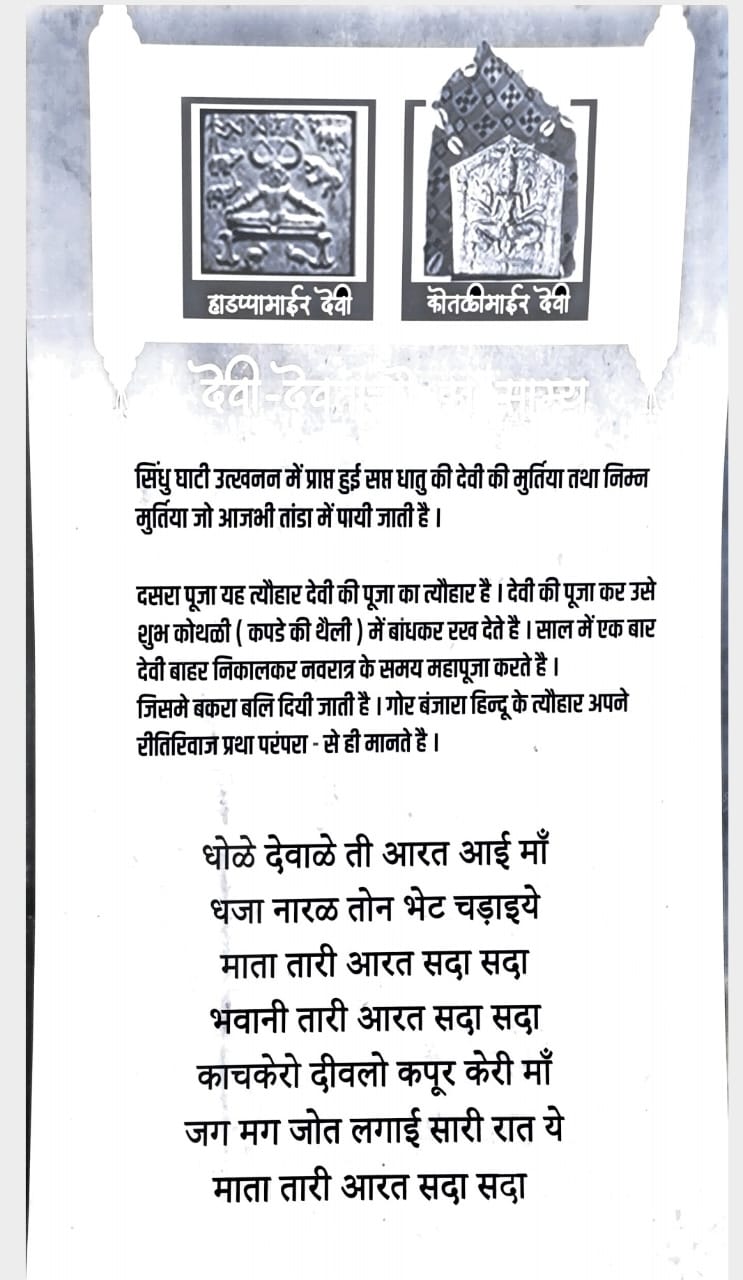 हाडप्पामाईर देवी
कोतळीमाईर देवी
देवी-देवताओं का साम्य
सिंधु घाटी उत्खनन में प्राप्त हुई सप्त धातु की देवी की मुर्तिया तथा निम्न
मुर्तिया जो आजभी तांडा में पायी जाती है ।
दसरा पूजा यह त्यौहार देवी की पूजा का त्यौहार है । देवी की पूजा कर उसे
शुभ कोथळी ( कपडे की थैली ) में बांधकर रख देते है । साल में एक बार
देवी बाहर निकालकर नवरात्र के समय महापूजा करते है ।
जिसमे बकरा बलि दियी जाती है । गोर बंजारा हिन्दू के त्यौहार अपने
रीतिरिवाज प्रथा परंपरा - से ही मानते है ।
धोळे देवाळे ती आरत आई माँ
धजा नारळ तोन भेट चड़ाइये
माता तारी आरत सदा सदा
भवानी तारी आरत सदा सदा
काचकेरो दीवलो कपूर केरी माँ
जग मग जोत लगाई सारी रात ये
माता तारी आरत सदा सदा